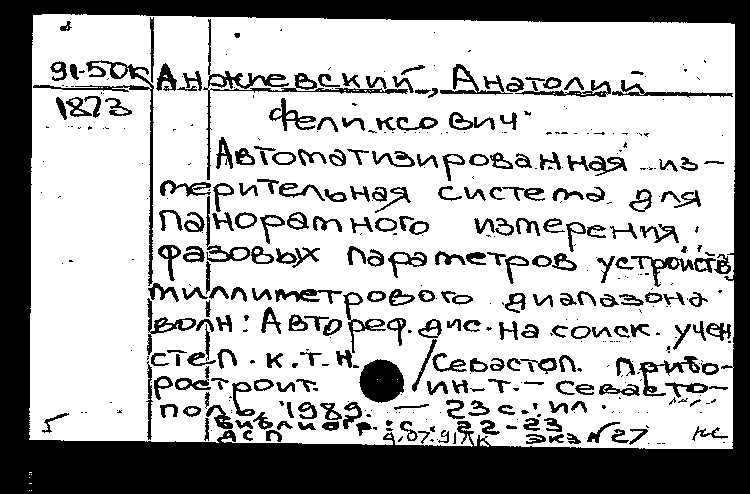 91-50К Анжиевский, Анатолий
1873 Феликсович
Автоматизированная из-
мерительная система для
панорамного измерения
фазовых параметров устройств
миллиметрового диапазона
волн: Автореф. дис. на соиск. учен
степ. к.т.н. / Севастоп. прибо-
ростроит. ин-т. – Севасто-
поль, 1989. – 23 с.: ил.
Библиогр.: с. 22-23
ДСП 4.07.91 ЛК экз N 27 нс
5